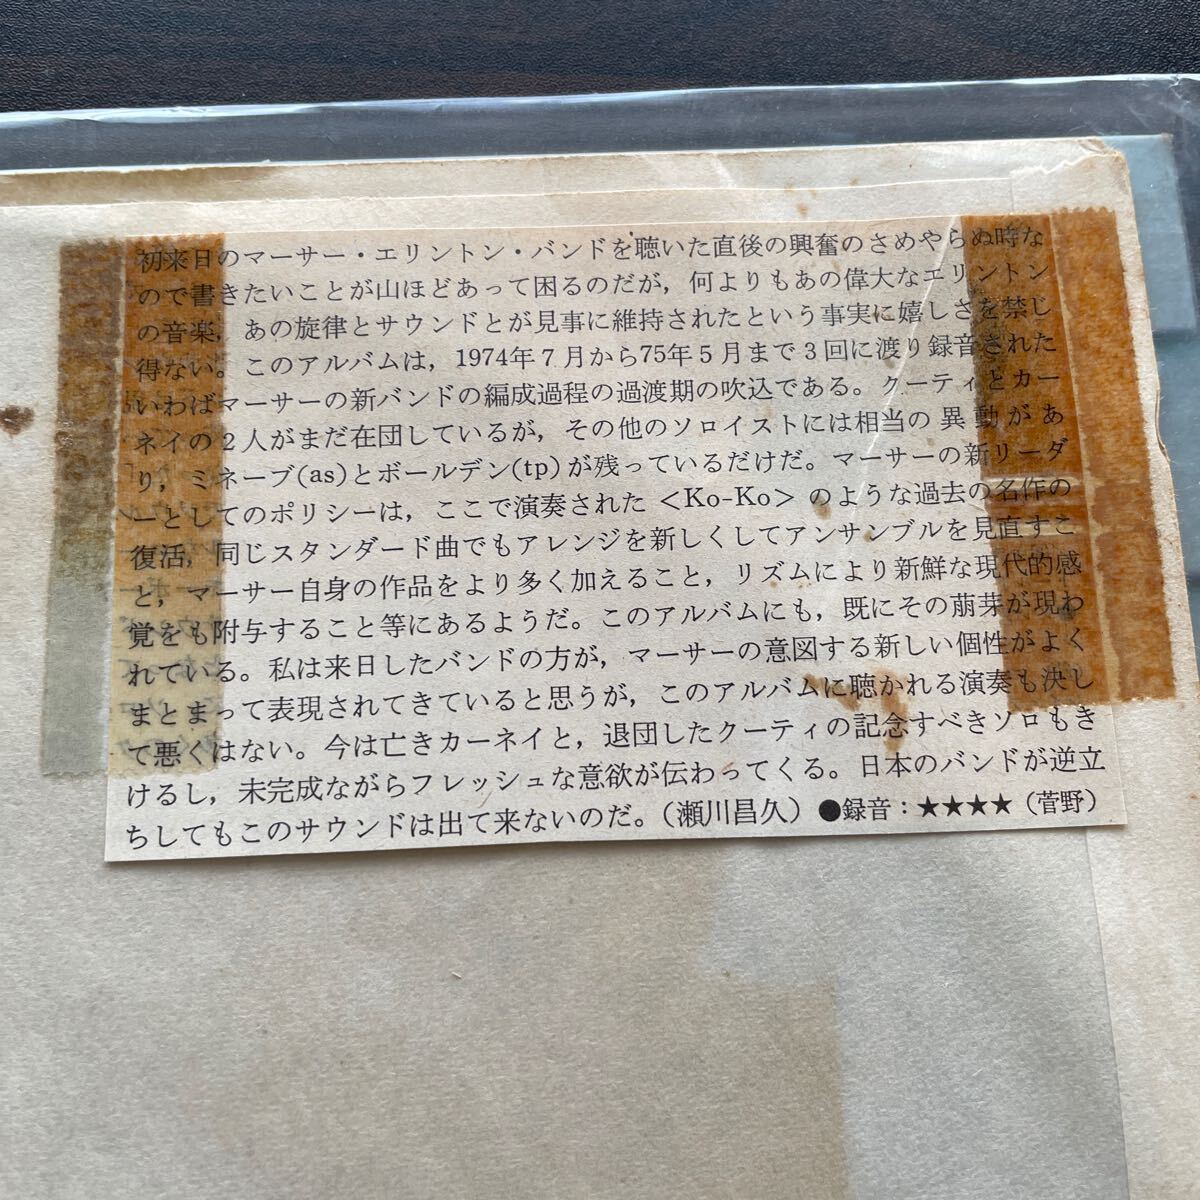 初来日のマーサー・エリントン・バンドを聴いた直後の興奮のさめやらぬ時な
ので書きたいことが山ほどあって困るのだが，何よりもあの偉大なエリントン
の音楽，あの旋律とサウンドとが見事に維持されたという事実に嬉しさを禁じ
得ない。このアルバムは，1974年7月から75年5月まで3回に渡り録音された
いわばマーサーの新バンドの編成過程の過渡期の吹込である。クーティとカー
ネイの2人がまだ在団しているが，その他のソロイストには相当の異動があ
り，ミネーブ(as)とボールデン(tp)が残っているだけだ。マーサーの新リーダ
ーとしてのポリシーは，ここで演奏された＜Ko-Ko＞のような過去の名作の
復活，同じスタンダード曲でもアレンジを新しくしてアンサンブルを見直すこ
と，マーサー自身の作品をより多く加えること，リズムにより新鮮な現代的感
覚をも附与すること等にあるようだ。このアルバムにも，既にその萠芽が現わ
れている。私は来日したバンドの方が，マーサーの意図する新しい個性がよく
まとまって表現されてきていると思うが，このアルバムに聴かれる演奏も決し
て悪くはない。今は亡きカーネイと，退団したクーティの記念すべきソロもき
けるし，未完成ながらフレッシュな意欲が伝わってくる。日本のバンドが逆立
ちしてもこのサウンドは出て来ないのだ。（瀬川昌久）●録音：★★★★（菅野）